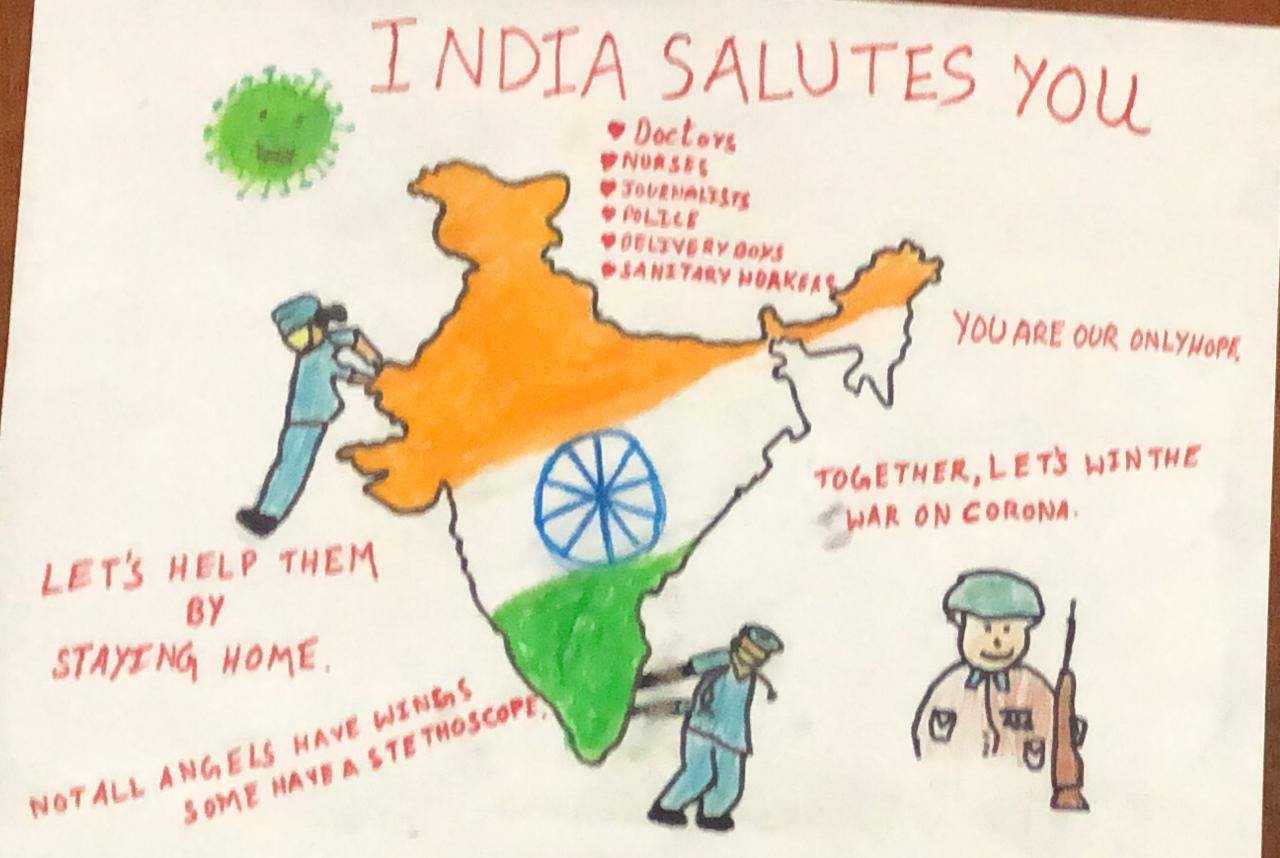 INDIA SALUTES YOU
♥ Doctors
♥ NURSES
♥ JOURNALISTS
♥ POLICE
♥ DELIVERY BOYS
♥ SANITARY WORKERS
YOU ARE OUR ONLY HOPE,
TOGETHER, LET'S WIN THE
WAR ON CORONA.
LET'S HELP THEM
BY
STAYING HOME.
NOT ALL ANGELS HAVE WINGS
SOME HAVE A STETHOSCOPE.